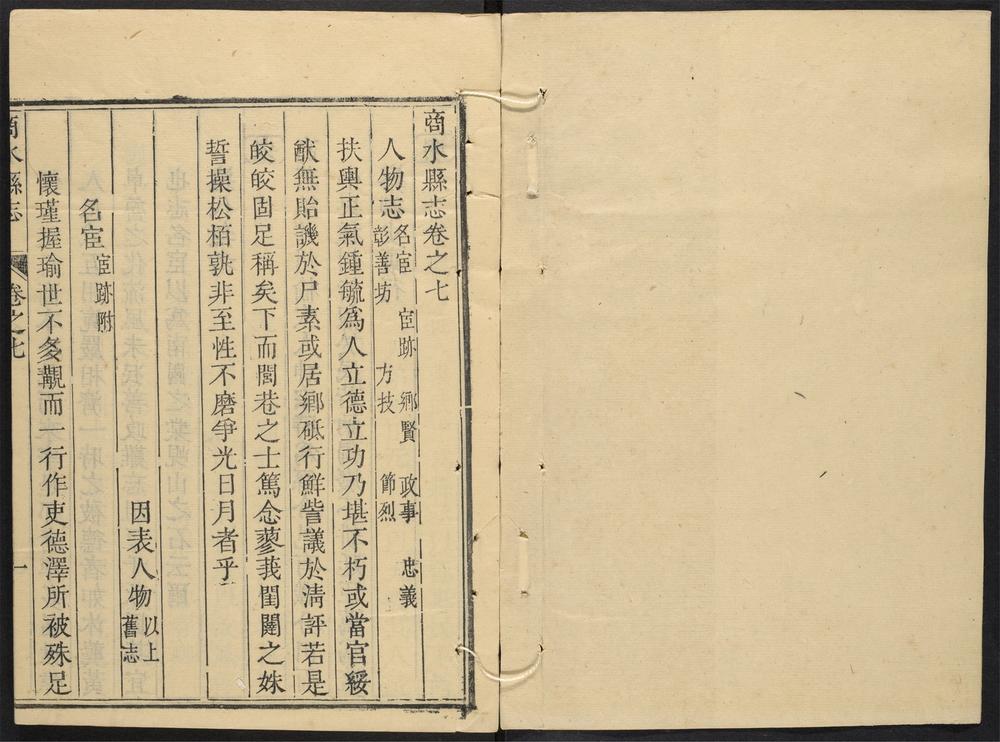 商水縣志卷之七
人物志 名宦 宦跡 鄉賢 政事 忠義
彰善坊 方技 節烈
扶輿正氣鍾毓爲人立德立功乃堪不朽或當官綏
猷無貽譏於尸素或居鄉砥行鮮訾議於淸評若是
皎皎固足稱矣下而閭巷之士篤念蓼莪閨闥之姝
誓操松栢孰非至性不磨爭光日月者乎
因表人物 以上
舊志
名宦 宦跡附
懷瑾握瑜世不多覯而一行作吏德澤所被殊足
商水縣志 卷之七 一